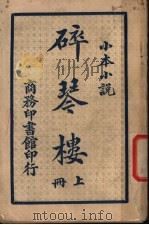 小本小說
碎琴樓
上
冊
商務印書館印行